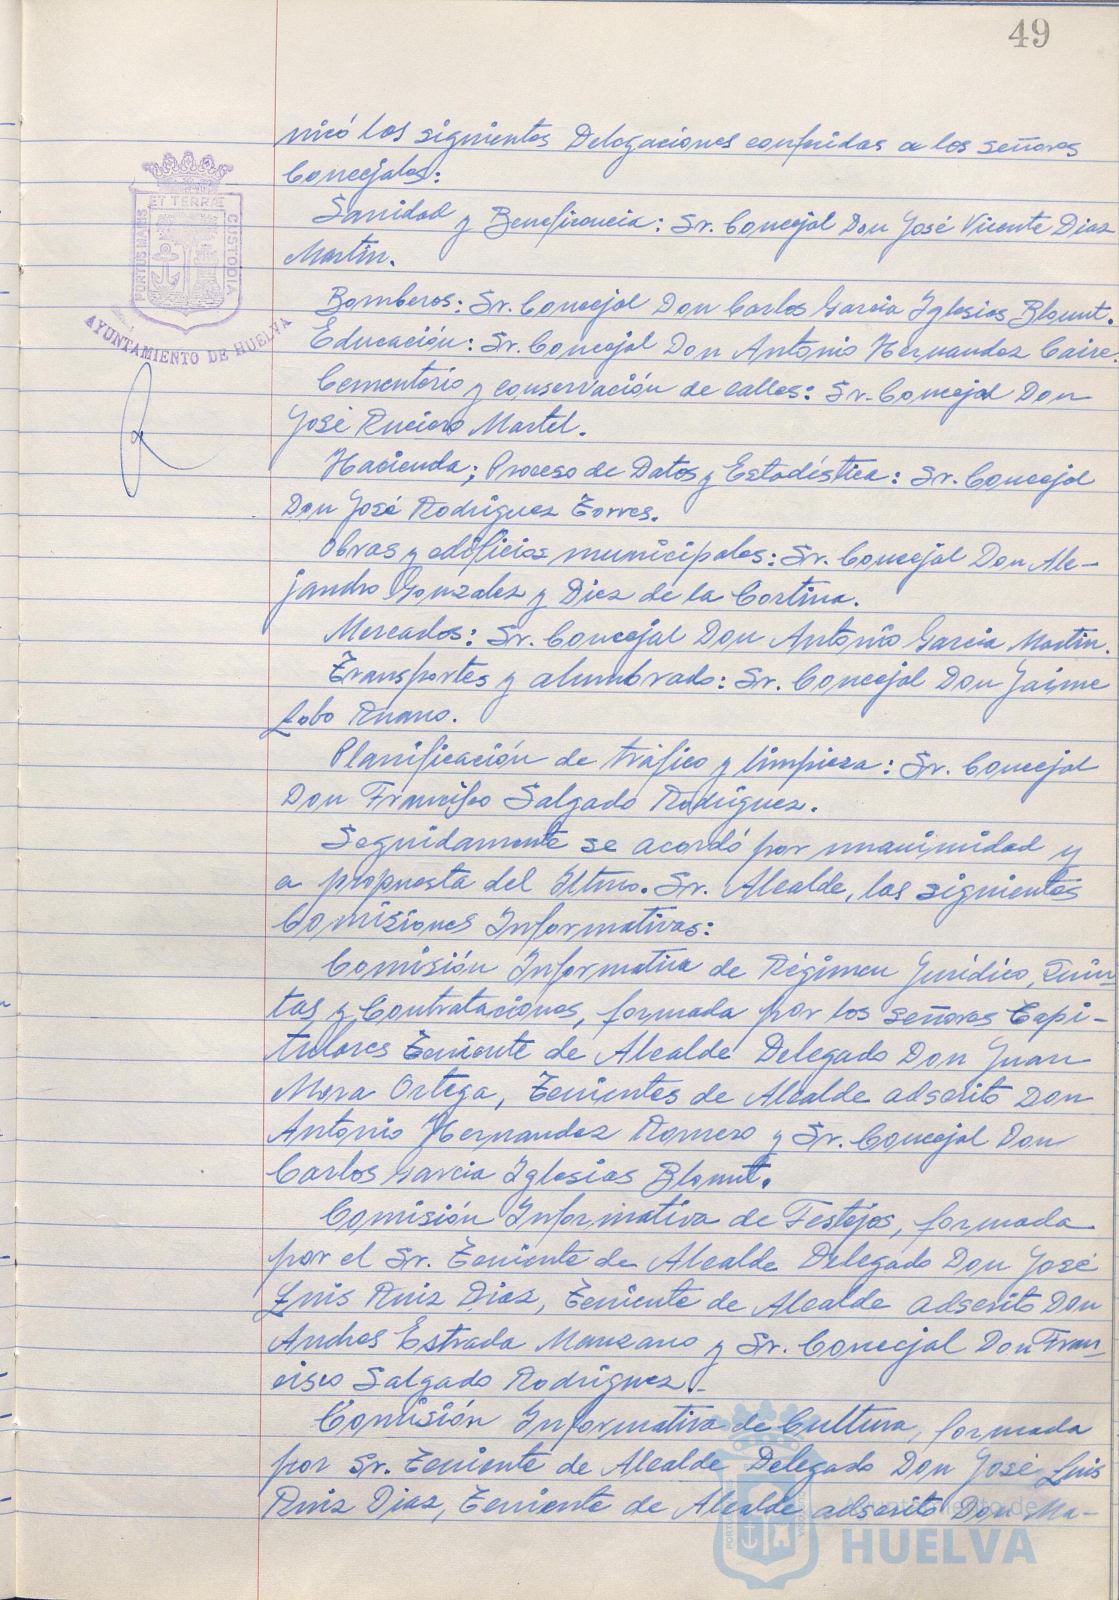 49
nicó las siguientes Delegaciones conferidas a los señores
Concejales:
Sanidad y Beneficencia: Sr. Concejal Don José Vicente Diaz
Martin.
Bomberos: Sr. Concejal Don Carlos Garcia Iglesias Blount.
Educación: Sr. Concejal Don Antonio Hernandez Caire.
Cementerio y conservación de calles: Sr. Concejal Don
José Rucioro Martel.
Hacienda; Proceso de Datos y Estadéstica: Sr. Concejal
Don José Rodriguez Torres.
Obras y edificios municipales: Sr. Concejal Don Ale-
jandro Gonzalez y Diez de la Cortina.
Mercados: Sr. Concejal Don Antonio Garcia Martin.
Transportes y alumbrado: Sr. Concejal Don Jaime
Lobo Ruano.
Planificación de tráfico y limpieza: Sr. Concejal
Don Francisco Salgado Rodriguez.
Seguidamente se acordó por unanimidad y
a propuesta del Iltmo. Sr. Alcalde, las siguientes
Comisiones Informativas:
Comisión Informativa de Régimen Juridico, Quin-
tas y Contrataciones, formada por los señores Capi-
tulares Teniente de Alcalde Delegado Don Juan
Mora Ortega, Tenientes de Alcalde adscrito Don
Antonio Hernandez Romero y Sr. Concejal Don
Carlos Garcia Iglesias Blount.
Comisión Informativa de Festejos, formada
por el Sr. Teniente de Alcalde Delegado Don José
Luis Ruiz Diaz, Teniente de Alcalde adscrito Don
Andres Estrada Manzano y Sr. Concejal Don Fran-
cisco Salgado Rodriguez.-
Comisión Informativa de Cultura, formada
por Sr. Teniente de Alcalde Delegado Don José Luis
Ruiz Diaz, Teniente de Alcalde adscrito Don Ma-
ET TERRÆ
PORTUS MARIS
CUSTODIA
AYUNTAMIENTO DE HUELVA
Ayuntamiento de
HUELVA